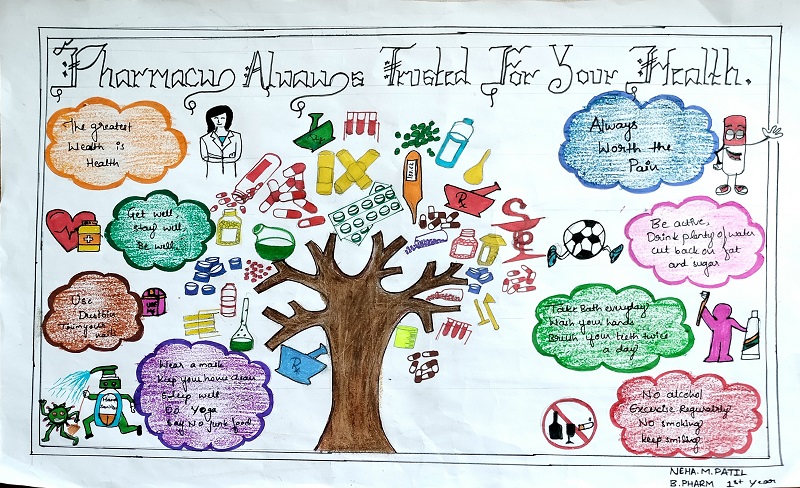 Pharmacy Always Trusted For Your Health.
The greatest
Wealth is
Health
Always
Worth the
Pain
Get well
Stay well
Be well
Be active,
Drink plenty of water
cut back on fat
and sugar
Use
Dustbin
Take Bath everyday
Wash your hands
Brush your teeth twice
a day
Wear a mask
Keep your home clean
Sleep well
Do Yoga
Say No junk food
No alcohol
Excercise Regularly
No smoking
keep smiling
Rx
Rx
NEHA.M.PATIL
B.PHARM 1st Year